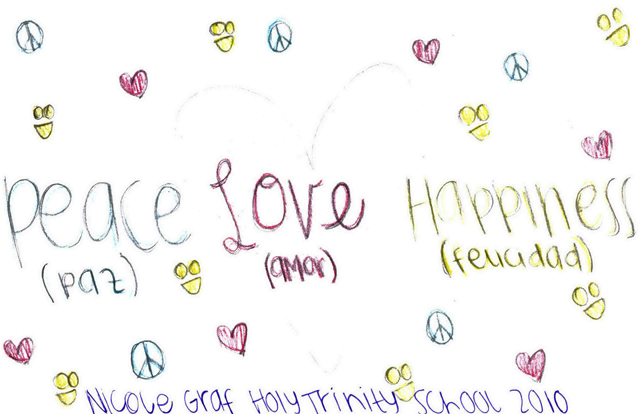 Peace Love Happiness
(paz) (amor) (felicidad)
Nicole Graf Holy Trinity School 2010